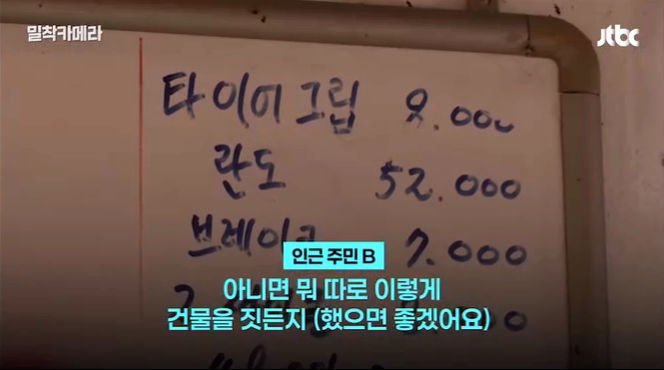 밀착카메라
jtbc
타이어그립 8.000
란도 52.000
브레이크 7.000
인근 주민 B
아니면 뭐 따로 이렇게
건물을 짓든지 (했으면 좋겠어요)